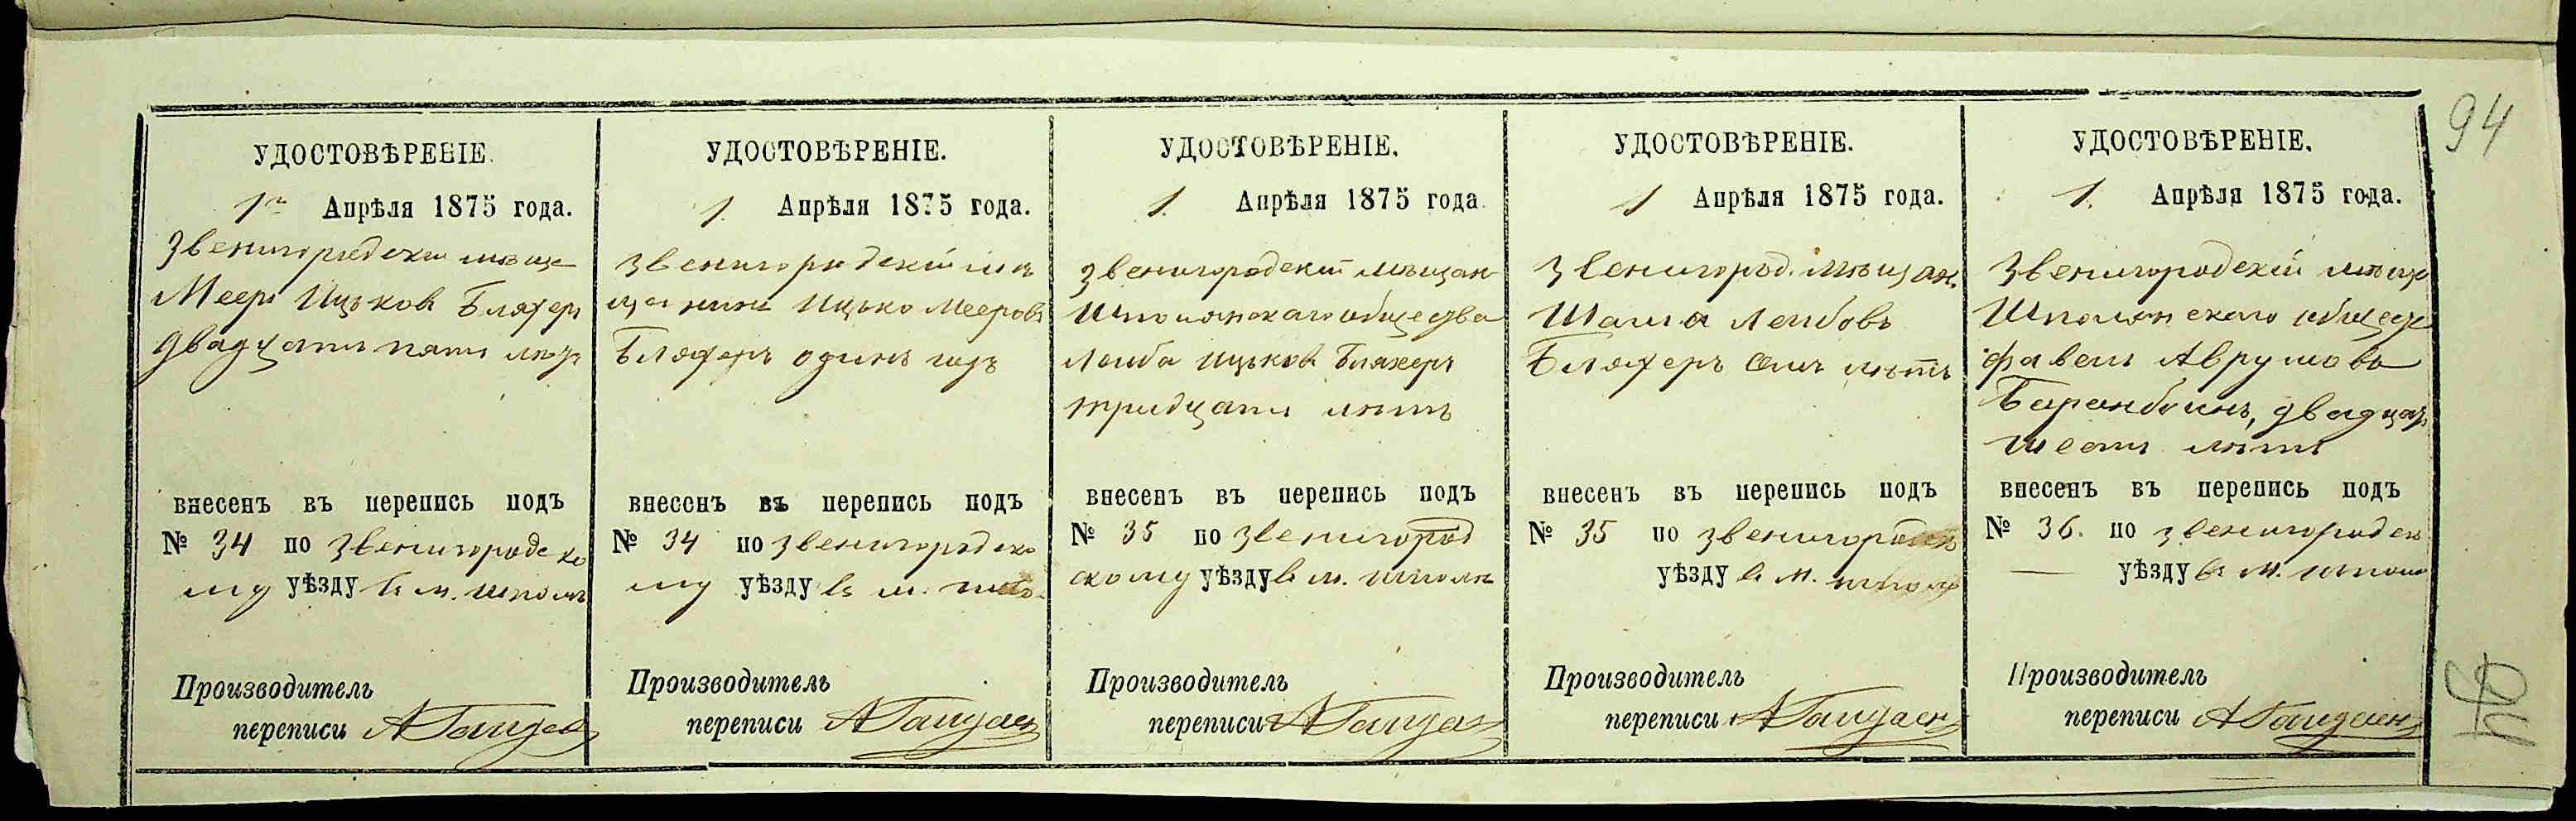 94
УДОСТОВѢРЕНІЕ.
1го Апрѣля 1875 года.
Звенигородскій мѣща
Меер Ицьков Бляхер
двадцать пять лѣт
внесенъ въ перепись подъ
№ 34 по Звенигородско
му уѣзду въ м. Шполѣ
Производитель
переписи
УДОСТОВѢРЕНІЕ.
1. Апрѣля 1875 года.
Звенигородскій мѣ
щанинъ Ицько Мееровъ
Бляхеръ одинъ годъ
внесенъ въ перепись подъ
№ 34 по Звенигородско
му уѣзду въ м.
Производитель
переписи
УДОСТОВѢРЕНІЕ.
1. Апрѣля 1875 года.
Звенигородскій мѣщан
Шполянскаго общества
Лейба Ицьков Бляхеръ
тридцать лѣтъ
внесенъ въ перепись подъ
№ 35 по Звенигород
скому уѣзду в м. Шполѣ
Производитель
переписи
УДОСТОВѢРЕНІЕ.
1 Апрѣля 1875 года.
Звенигород. мѣщан.
Шама Лейбовъ
Бляхеръ семь лѣтъ
внесенъ въ перепись подъ
№ 35 по Звенигородск
уѣзду в м. Шполѣ
Производитель
переписи
УДОСТОВѢРЕНІЕ.
1. Апрѣля 1875 года.
Звенигородскій мѣща
Шполянскаго общест
Фавель Аврумовъ
Баранбоинъ, двадцать
шесть лѣтъ
внесенъ въ перепись подъ
№ 36. по Звенигородск
— уѣзду въ м. Шпол
Производитель
переписи